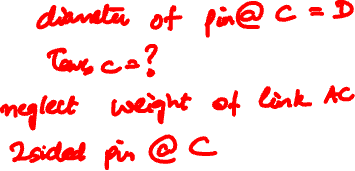 diameter of pin@ C = D
τave, c = ?
neglect weight of link AC
2sided pin @ C